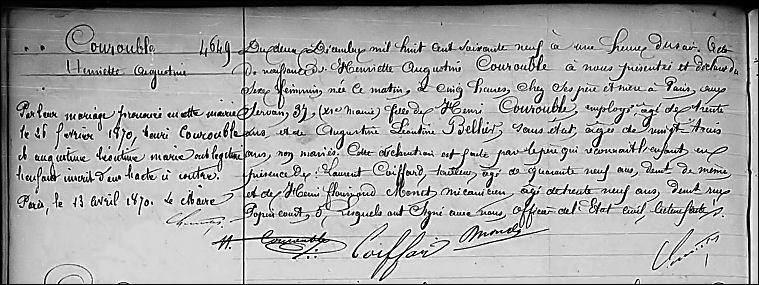 Courouble
Henriette Augustine
Par leur mariage prononcé en cette mairie
le 26 février 1870, Henri Courouble
et Augustine Léontine marie ont légitimé
l'enfant inscrit dans l'acte ci contre.
Paris, le 13 avril 1870. Le Maire
4649 Du deux Décembre mil huit cent soixante neuf à une heure du soir. Acte
de naissance de Henriette Augustine Courouble à nous présentée et déclarée du
sexe féminin, née ce matin, à cinq heures, chez ses père et mère à Paris, rue
Servan, 37, (XIe mairie) fille de Henri Courouble, employé, âgé de trente
ans, et de Augustine Léontine Bellier, sans état, âgée de vingt trois
ans, non mariés. Cette déclaration est faite par le père qui reconnaît l'enfant, en
présence de: Laurent Coiffard, tailleur, âgé de quarante neuf ans, demt de même
et de Henri Monet mécanicien, âgé de trente neuf ans, demt rue
Popincourt, 5, Lesquels ont signé avec nous, officier de l'État civil, lecture faite.
H. Courouble Coiffard